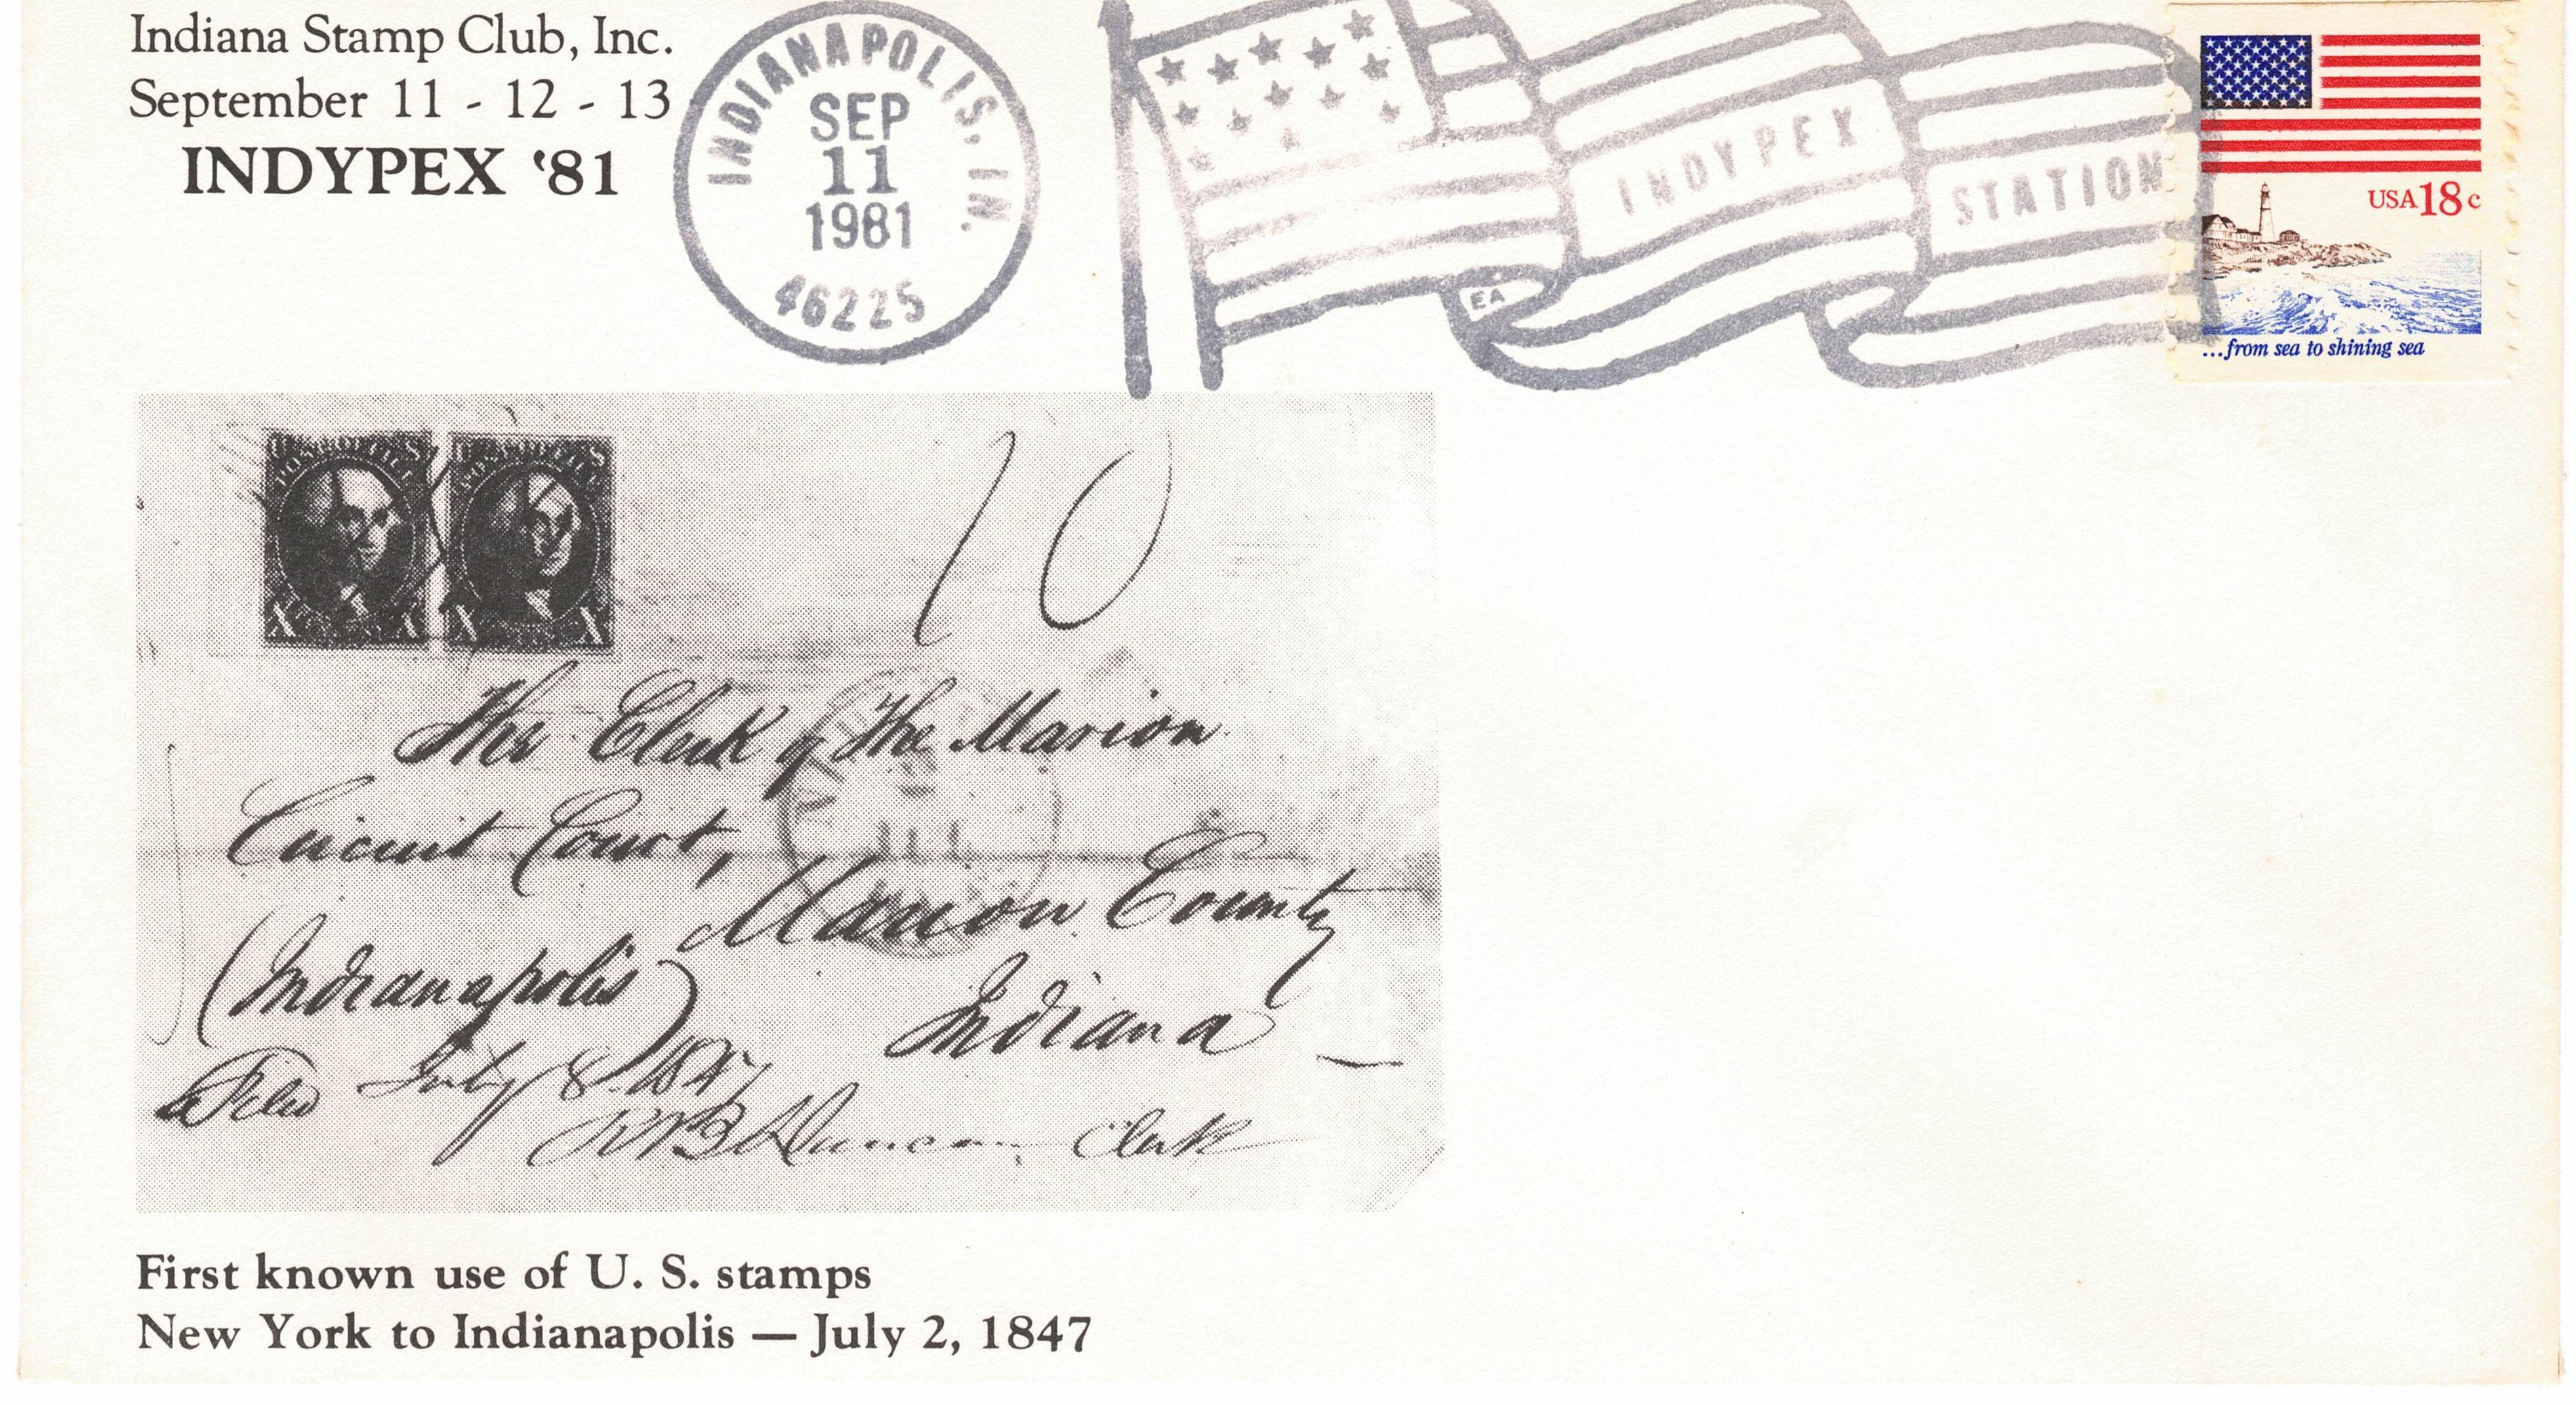 Indiana Stamp Club, Inc.
September 11 - 12 - 13
INDYPEX '81
INDIANAPOLIS, IN.
SEP
11
1981
46225
INDYPEX
STATION
EA
USA18c
...from sea to shining sea
POST OFFICE
X X
X X
10
The Clerk of The Marion
Circuit Court,
Marion County
(Indianapolis)
Indiana
Filed July 8. 1847
R B Duncan Clerk
First known use of U. S. stamps
New York to Indianapolis — July 2, 1847